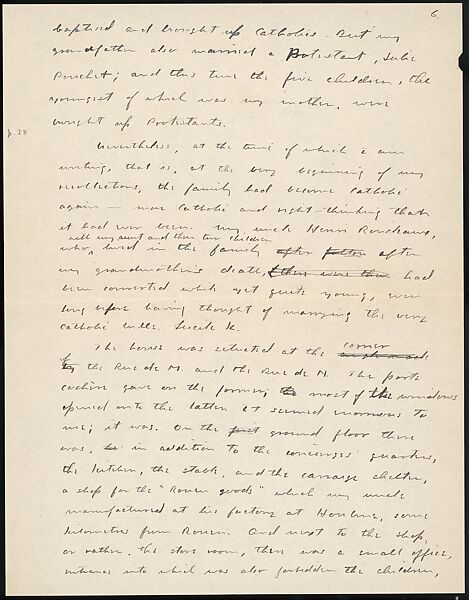 6.
baptised and brought up Catholic. But my
grandfather also married a Protestant, Julie
Pouchet; and this time the five children, the
youngest of which was my mother, were
brought up Protestants.
p. 28
Nevertheless, at the time of which I am
writing, that is, at the very beginning of my
recollections, the family had become Catholic
again — more Catholic and right-thinking than
it had ever been. My uncle Henri Rondeaux,
with my aunt and their two children
who lived in the family after after
my grandmother's death, there were then had
been converted while yet quite young, even
long before having thought of marrying the very
Catholic Mlle. Lucile K.
The house was situated at the corner
of the Rue de M. and the Rue de N. The porte
cochère gave on the former; most of the windows
opened onto the latter. It seemed enormous to
me; it was. On the first ground floor there
was, in addition to the concierge's quarters,
the kitchen, the stable, and the carriage shelter,
a shop for the "Rouen goods" which my uncle
manufactured at his factory at Houlme, some
kilometres from Rouen. And next to the shop,
or rather, the store room, there was a small office,
entrance into which was also forbidden the children,